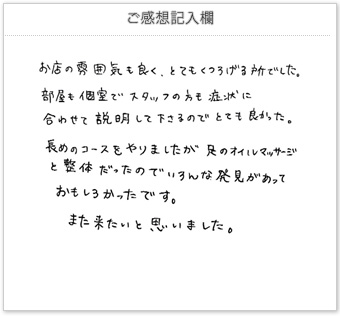 ご感想記入欄
お店の雰囲気も良く、とてもくつろげる所でした。
部屋も個室でスタッフの方も症状に
合わせて説明して下さるのでとても良かった。
長めのコースをやりましたが足のオイルマッサージ
と整体だったのでいろんな発見があって
おもしろかったです。
また来たいと思いました。